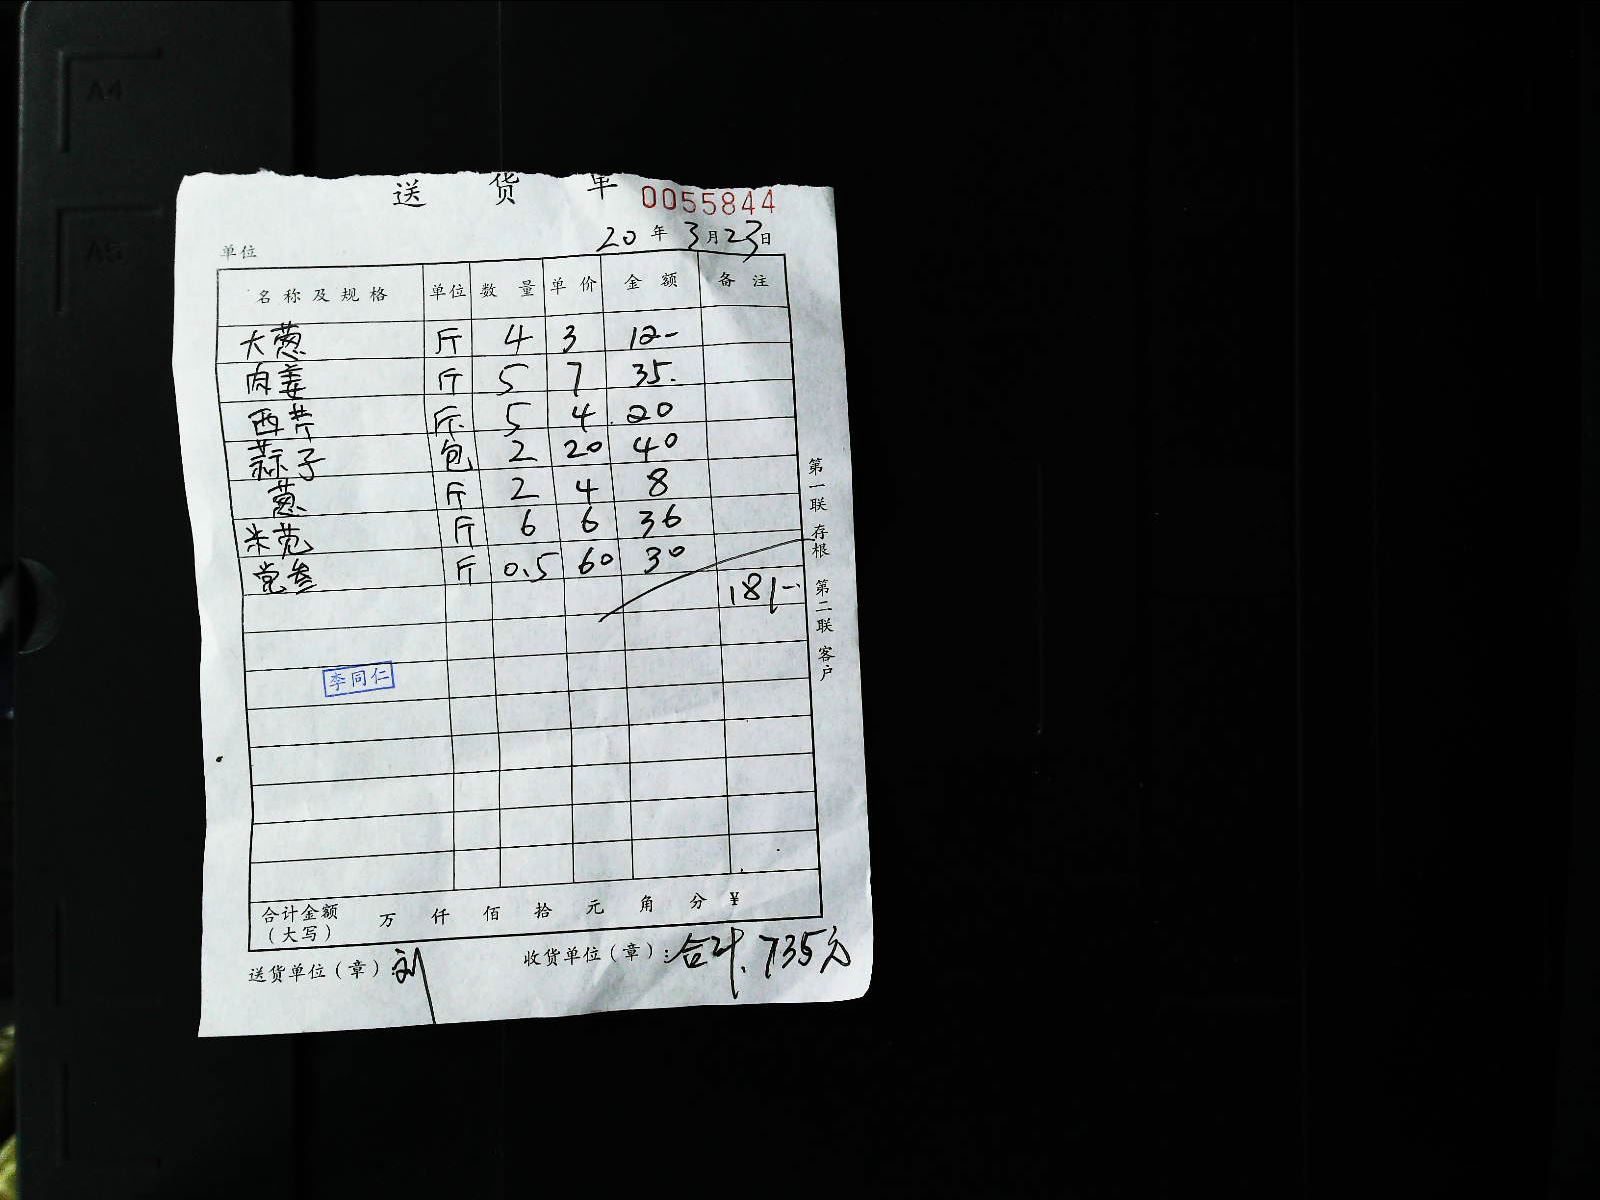 A4
A5
送 货 单 0055844
20 年 3 月 23 日
单位
名称及规格 单位 数量 单价 金额 备注
大葱 斤 4 3 12-
肉姜 斤 5 7 35.
西芹 斤 5 4 20
蒜子 包 2 20 40
葱 斤 2 4 8
米苋 斤 6 6 36
党参 斤 0.5 60 30
181-
李同仁
第一联 存根 第二联 客户
合计金额 万 仟 佰 拾 元 角 分 ¥
（大写）
送货单位（章） 刘 收货单位（章）: 合计. 735元